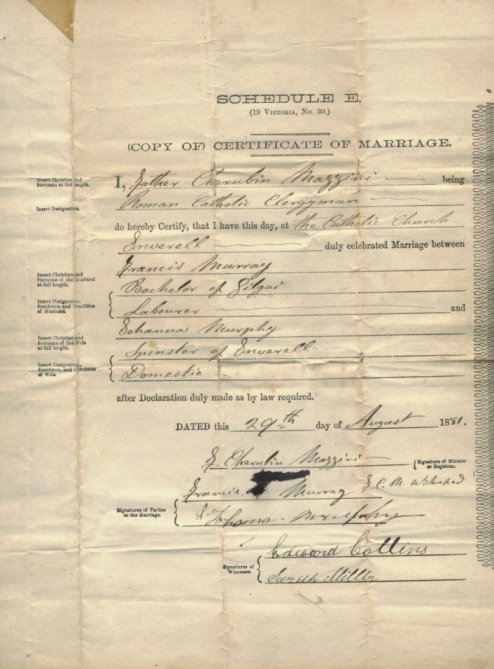 SCHEDULE E.
(19 VICTORIA, No. 30.)
(COPY OF) CERTIFICATE OF MARRIAGE.
Insert Christian and Surname at full length.
I, Father Cherubin Mazzini being
Insert Designation.
Roman Catholic Clergyman
do hereby Certify, that I have this day, at the Catholic Church
Inverell duly celebrated Marriage between
Insert Christian and Surname of the Husband at full length.
Francis Murray
Insert Designation, Residence, and Condition of Husband.
Bachelor of Gilgai
Labourer and
Insert Christian and Surname of the Wife at full length.
Johanna Murphy
Insert Designation, Residence, and Condition of Wife.
Spinster of Inverell
Domestic
after Declaration duly made as by law required.
DATED this 29th day of August 1881.
Cherubin Mazzini
Signature of Minister or Registrar.
Francis Murray
Signatures of Parties to the Marriage.
Murphy
Signatures of Witnesses.
Edward Collins
Sarah Miller